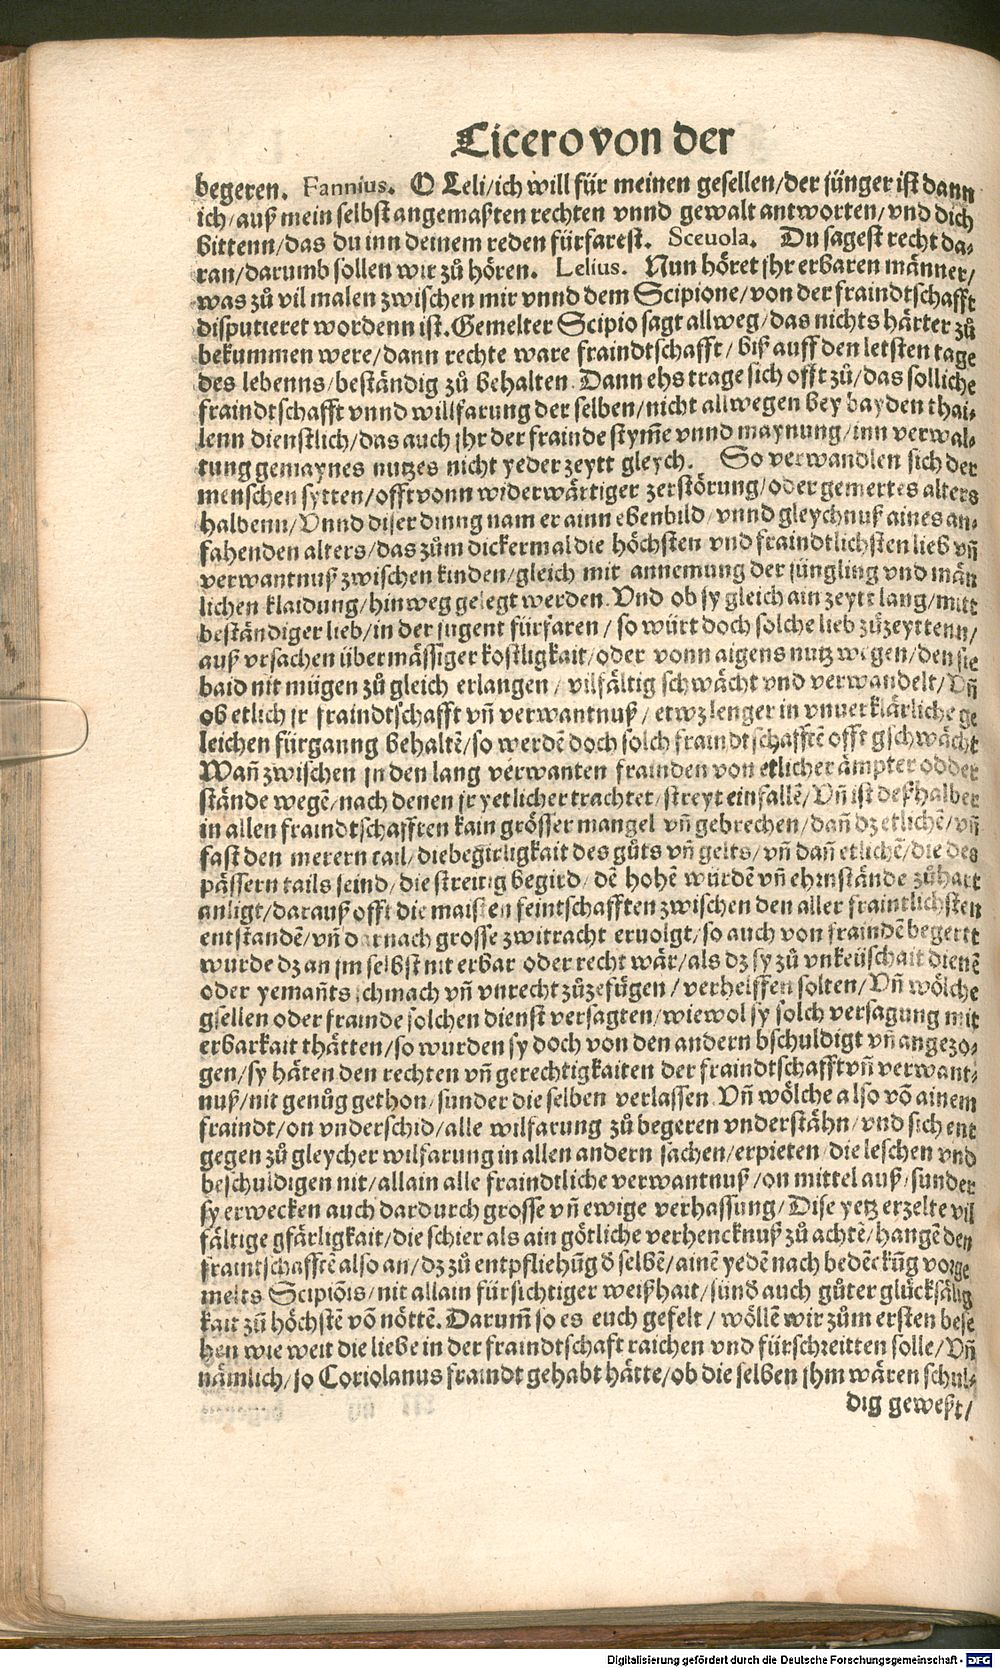 Cicero von der
begeren. Fannius. O Leli/ich will für meinen gesellen/der jünger ist dann
ich/auß mein selbst angemaßten rechten vnnd gewalt antworten/vnd dich
bittenn/das du inn deinem reden fürfarest. Sceuola. Du sagest recht da⸗
ran/darumb sollen wir zů hören. Lelius. Nun höret jhr erbaren männer/
was zů vil malen zwischen mir vnnd dem Scipione/von der fraindtschafft
disputieret wordenn ist. Gemelter Scipio sagt allweg/das nichts härter zů
bekummen were/dann rechte ware fraindtschafft/biß auff den letsten tage
des lebenns/beständig zů behalten. Dann ehs trage sich offt zů/das solliche
fraindtschafft vnnd willfarung der selben/nicht allwegen bey bayden thai⸗
lenn dienstlich/das auch jhr der frainde stym̃e vnnd maynung/inn verwal⸗
tung gemaynes nutzes nicht yeder zeytt gleych. So verwandlen sich der
menschen sytten/offt vonn widerwärtiger zerstörung/oder gemertes alters
halbenn/Vnnd diser dinng nam er ainn ebenbild/vnnd gleychnuß aines an⸗
fahenden alters/das zům dickermal die höchsten vnd fraindtlichsten lieb vñ
verwantnuß zwischen kinden/gleich mit annemung der jüngling vnd män
lichen klaidung/hinweg gelegt werden. Vnd ob sy gleich ain zeytt lang/mitt
beständiger lieb/in der jugent fürfaren/so würt doch solche lieb zůzeyttenn/
auß vrsachen übermässiger kostligkait/oder vonn aigens nutz wegen/den sie
baid nit mügen zů gleich erlangen/vilfältig schwächt vnd verwandelt/Vñ
ob etlich jr fraindtschafft vñ verwantnuß/etwz lenger in vnuerklärliche ge
leichen fürganng behaltẽ/so werdẽ doch solch fraindtschafftẽ offt gschwächt
Wañ zwischen jn den lang verwanten frainden von etlicher ämpter odder
stände wegẽ/nach denen jr yetlicher trachtet/streyt einfallẽ/Vñ ist deßhalber
in allen fraindtschafften kain grösser mangel vñ gebrechen/dañ dz etlichẽ/vñ
fast den merern tail/die begirligkait des gůts vñ gelts/vñ dañ etlichẽ/die des
pässern tails seind/die streitig begird/dẽ hohẽ würdẽ vñ ehrnstände zů hart
anligt/darauß offt die maisten feintschafften zwischen den aller fraintlichsten
entstandẽ/vñ darnach grosse zwitracht eruolgt/so auch von fraindẽ begertt
wurde dz an jm selbst nit erbar oder recht wär/als dz sy zů vnkeüschait dienẽ
oder yemañts schmach vñ vnrecht zůzefügen/verhelffen solten/Vñ wölche
gsellen oder frainde solchen dienst versagten/wiewol sy solch versagung mit
erbarkait thätten/so wurden sy doch von den andern bschuldigt vñ angezo⸗
gen/sy häten den rechten vñ gerechtigkaiten der fraindtschafft vñ verwant⸗
nuß/nit genůg gethon/sunder die selben verlassen. Vñ wölche also võ ainem
fraindt/on vnderschid/alle wilfarung zů begeren vnderstähn/vnd sich ent
gegen zů gleycher wilfarung in allen andern sachen/erpieten/die leschen vnd
beschuldigen nit/allain alle fraindtliche verwantnuß/on mittel auß/sunder
sy erwecken auch dardurch grosse vñ ewige verhassung/Dise yetz erzelte vil
fältige gfärligkait/die schier als ain götliche verhencknuß zů achtẽ/hangẽ den
fraintschafftẽ also an/dz zů entpfliehũg d̃ selbẽ/ainẽ yedẽ nach bedẽckũg vorge
melts Scipiõis/nit allain fürsichtiger weißhait/sũd̃ auch gůter glücksälig
kait zũ höchstẽ võ nöttẽ. Darum̃ so es euch gefelt/wöllẽ wir zům ersten bese
hen wie weit die liebe in der fraindtschaft raichen vnd fürschreitten solle/Vñ
nämlich/so Coriolanus fraindt gehabt hätte/ob die selben jhm wären schul⸗
dig geweßt/
Digitalisierung gefördert durch die Deutsche Forschungsgemeinschaft - DFG